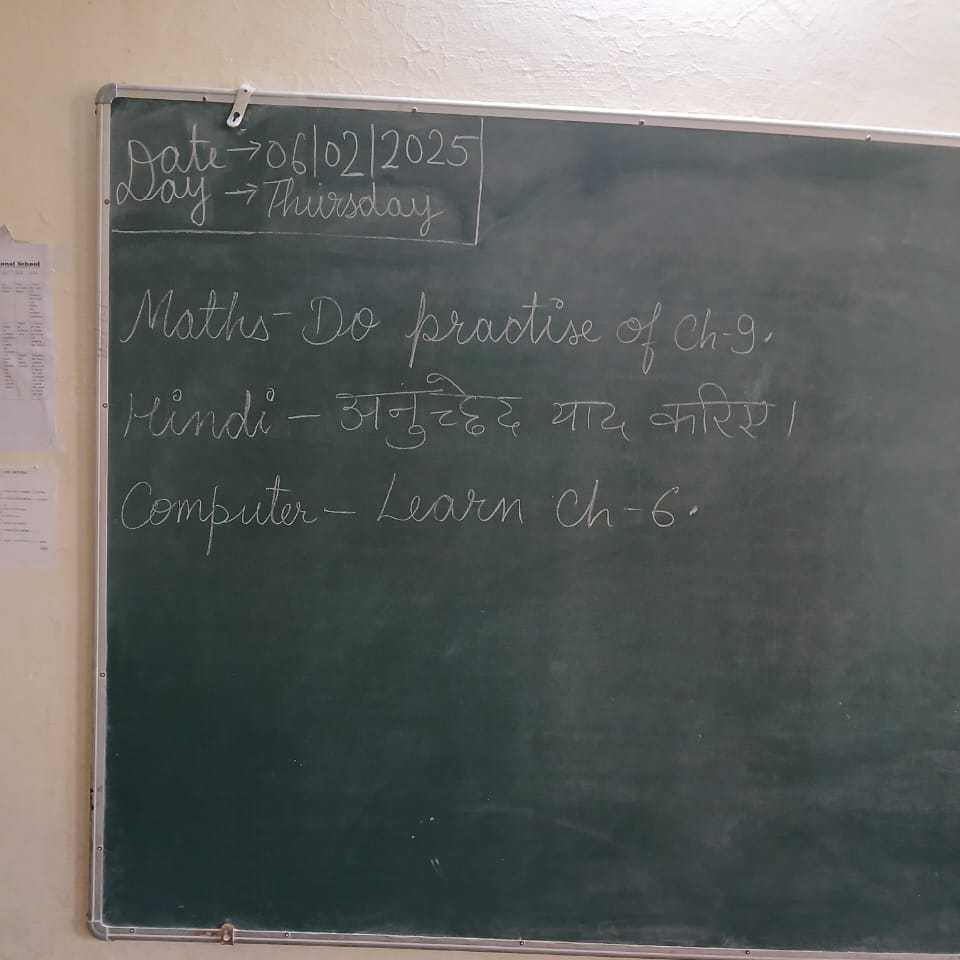 Date → 06/02/2025
Day → Thursday
Maths - Do practise of Ch-9.
Hindi - अनुच्छेद याद करिए।
Computer - Learn Ch-6.
onal School